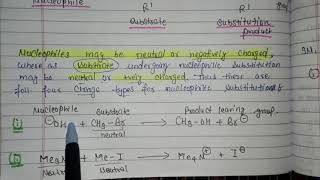 Nucleophile R' R'
substrate substitution
product
Nucleophiles may be neutral or negatively charged,
where as substrate undergoing nucleophilic substitution
may be neutral or +vely charged, thus there are
four charge types for nucleophilic substitutions
Nucleophile Substrate Product leaving group.
(i) ⊖OH + CH₃-Br → CH₃-OH + Br⊖
neutral
(ii) Me₃N + Me-I → Me₄N⊕ + I⊖
Neutral neutral